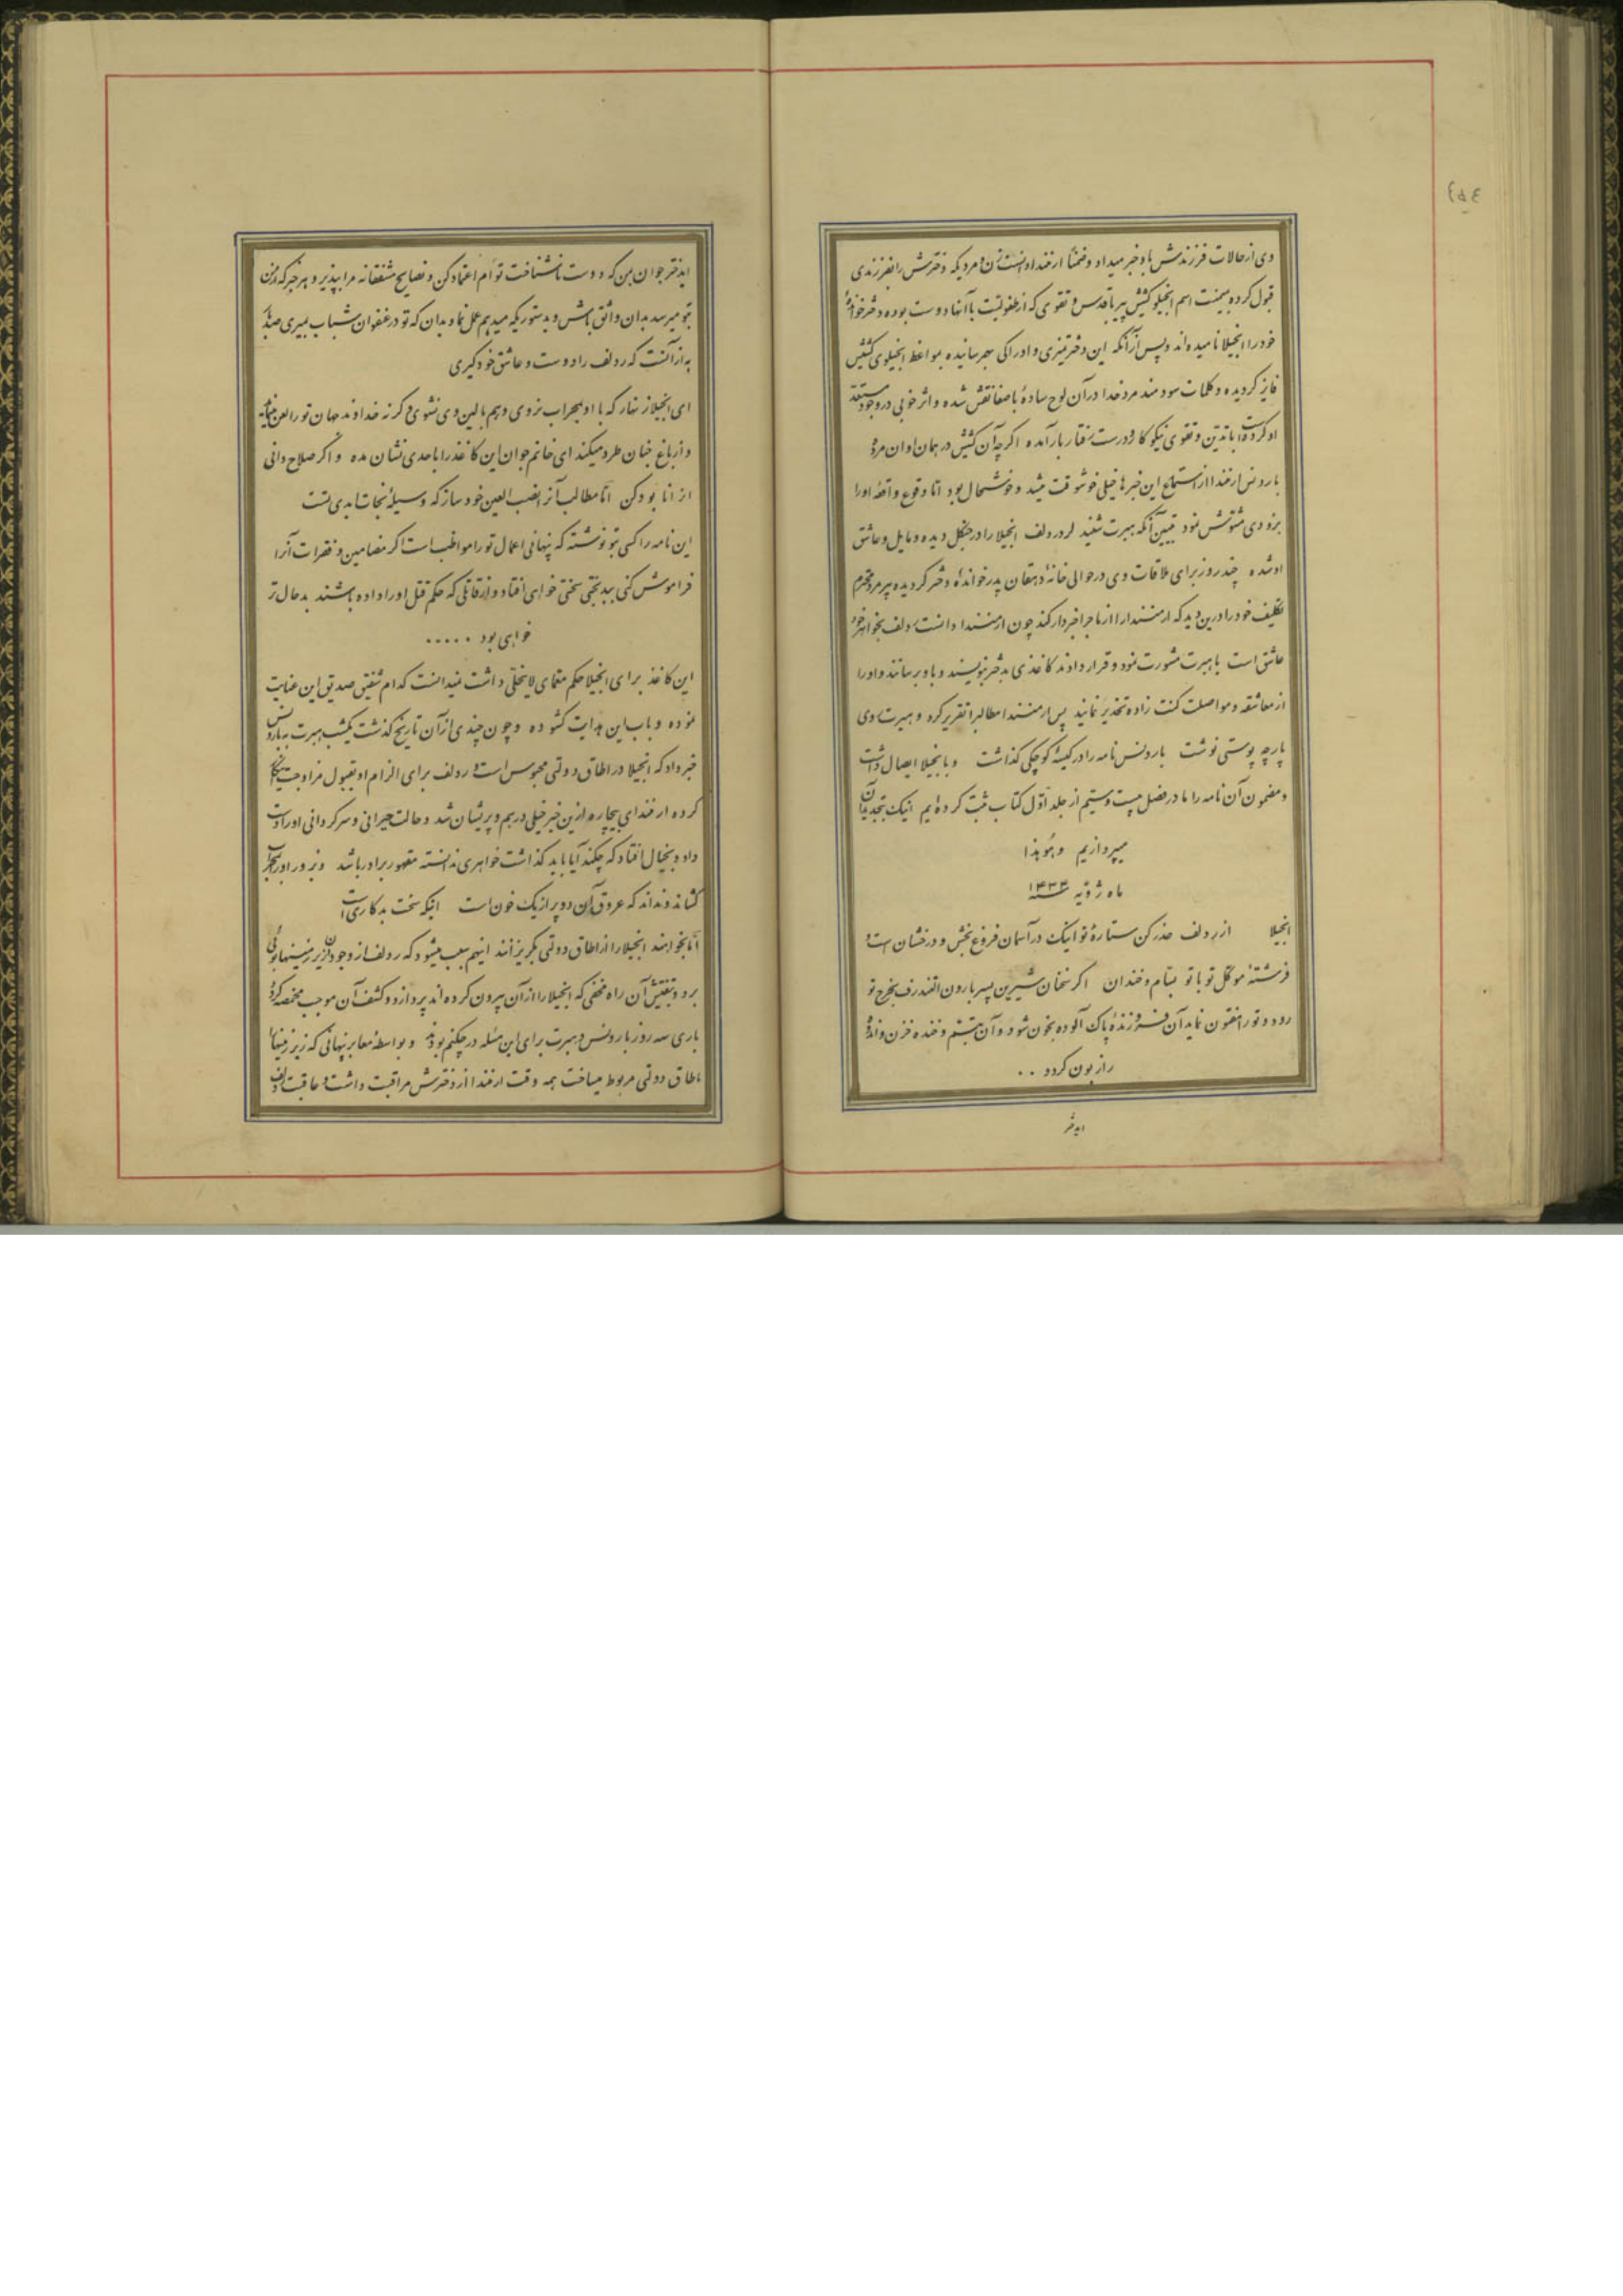 ٤٥٤
وی از حالات فرزندش باو خبر میداد و ضمناً ارمنندا دانست زن و مردیکه دخترش را بفرزندی
قبول کرده بمیمنت اسم انجیلو کشیش پیر با قدس و تقوی که از طفولیت با آنها دوست بوده دختر خواندهٔ
خود را انجیلا نامیده‌اند و پس از آنکه این دختر تمیزی و ادراکی بهمرسانیده بمواعظ انجیلوی کشیش
فایز گردیده و کلمات سودمند مرد خدا در آن لوح سادهٔ با صفا نقش شده و اثر خوبی در وجود مستعد
او کرده است با تدین و تقوی نیکو کار و درست رفتار بار آمده اگر چه آن کشیش در همان اوان مرده
باری ارمنندا از استماع این خبرها خیلی خوشوقت میشد و خوشحال بود اما وقوع واقعهٔ او را
بزودی مشوش نمود تبیین آنکه هبرت شنید لرد ردلف انجیلا را در جنگل دیده و مایل و عاشق
او شده چند روز برای ملاقات وی در حوالی خانهٔ دهقان پدر خواندهٔ دختر گردیده پیرمرد محترم
تکلیف خود را در این دید که ارمنندا را از ماجرا خبردار کند چون ارمنندا دانست ردلف بخواهر خود
عاشق است با هبرت مشورت نمود و قرار دادند کاغذی بدختر بنویسند و باو برسانند و او را
از معاشقه و مواصلت کنت زاده تحذیر نمایند پس ارمنندا مطالب را تقریر کرد و هبرت روی
پارچه پوستی نوشت باردنس نامه را در کیسهٔ کوچکی گذاشت و بانجیلا ایصال داشت
و مضمون آن نامه را ما در فصل بیست و ستیم از جلد اول کتاب ثبت کرده‌ایم اینک بتجدید آن
میپردازیم وهو هذا
ماه ژوئیه سنه ۱۴۳۴
انجیلا از ردلف حذر کن ستارهٔ تو اینک در آسمان فروغ بخش و درخشان است و
فرشتهٔ موکل تو با تو بسّام و خندان اگر سخنان شیرین پسر بارون التندرف بخرج تو
رود و تو را مفتون نماید آن فروزندهٔ پاک آلوده بخون شود و آن تبسّم و خنده حزن و اندوه
را زبون گردد ..
ایدختر
ایدختر جوان بمن که دوست ناشناخت توأم اعتماد کن و نصایح مشفقانه مرا بپذیر و بهر خبر که از من
بتو میرسد بدان واثق باش و بدستوریکه میدهم عمل نما و بدان که تو در عنفوان شباب بمیری صد بار
به از آنست که ردلف را دوست و عاشق خود گیری
ای انجیلا زنهار که با او بمحراب نروی و هم بالین وی نشوی وگرنه خداوند جهان تو را لعن مینماید
و از باغ جنان طرد میکند ای خانم جوان این کاغذ را باحدی نشان مده و اگر صلاح دانی
آنرا نابود کن اما مطالب آنرا نصب العین خود ساز که وسیلهٔ نجات ابدی تست
این نامه را کسی بتو نوشته که پنهانی اعمال تو را مواظب است اگر مضامین و فقرات آنرا
فراموش کنی ببدبختی سختی خواهی افتاد و از قاتلی که حکم قتل او را داده باشند بدحال‌تر
خواهی بود .....
این کاغذ برای انجیلا حکم معمای لاینحلی داشت نمیدانست کدام شفیق صدیق این عنایت
نموده و باب این هدایت گشوده و چون چندی از آن تاریخ گذشت یکشب هبرت به باردنس
خبر داد که انجیلا در اطاق دولتی محبوس است و ردلف برای الزام او بقبول مزاوجت
کرده ارمندای بیچاره ازین خبر خیلی درهم و پریشان شد و حالت حیرانی و سرگردانی او را دست
داد و بخیال افتاد که چکند آیا باید گذاشت خواهری ندانسته مقهور برادر باشد و بزور او را
کشاند و نداند که عروق آن دو پر از یک خون است اینکه سخت بد کاری است
اما بخواهند انجیلا را از اطاق دولتی بگریزانند اینهم سبب میشود که ردلف از وجود آن زیر زمینها بوئی
برد و بتفتیش آن راه مخفی که انجیلا را از آن بیرون کرده‌اند پردازد و کشف آن موجب مخمصه گردد
باری سه روز باردنس و هبرت برای این مسئله در چکنم بودند و بواسطهٔ معابر پنهانی که زیر زمینها را
باطاق دولتی مربوط میساخت همه وقت ارمنندا از دخترش مراقبت داشت و عاقبت ردلف